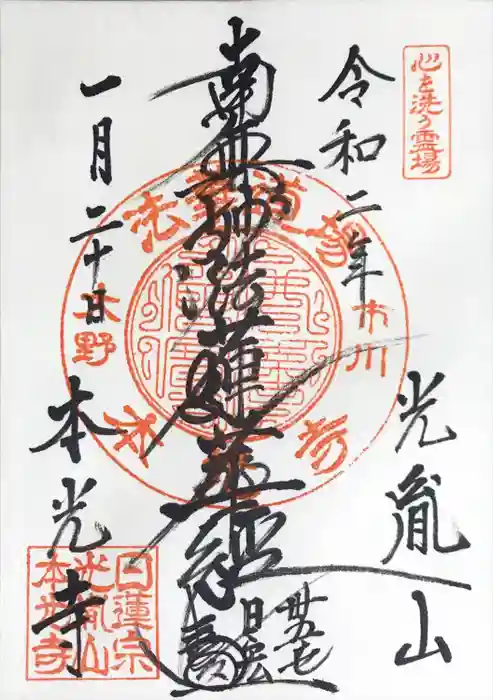 心を洗う霊場
令和二年
光胤山
南無妙法蓮華経
卅五世
一月二十日
本光寺
法華道場
市川
大野
日蓮宗
光胤山
本光寺